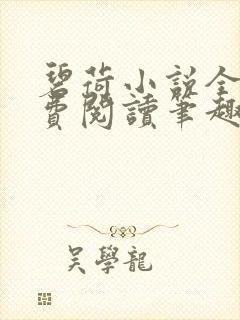 碧荷小說全
費閱讀筆趣
吳學龍